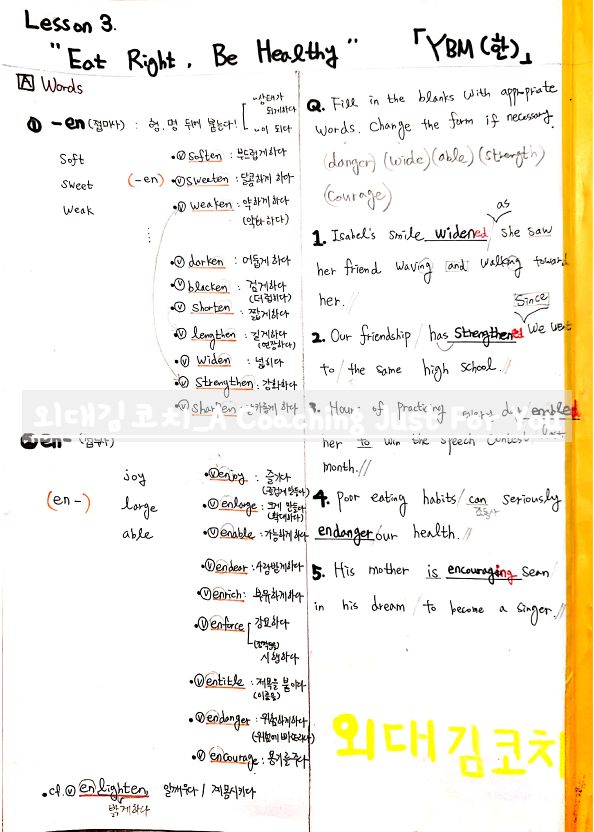 Lesson 3.
"Eat Right, Be Healthy" 「YBM(한)」
A Words
① -en(접미사) : 형, 명 뒤에 붙는다!
~상태가 되게하다
~이 되다
Soft
•ⓥ soften : 부드럽게하다
Sweet (-en)
•ⓥ sweeten : 달콤하게 하다
Weak
•ⓥ weaken : 약하게 하다
(약화하다)
•ⓥ darken : 어둡게 하다
•ⓥ blacken : 검게하다
(더럽히다)
•ⓥ shorten : 짧게하다
•ⓥ lengthen : 길게하다
(연장하다)
•ⓥ widen : 넓히다
•ⓥ strengthen : 강화하다
•ⓥ sharpen : 날카롭게 하다
② en-(접두사)
(en-)
joy
•ⓥ enjoy : 즐기다
large
•ⓥ enlarge : 크게 만들다
(확대하다)
able
•ⓥ enable : 가능하게 하다
•ⓥ endear : 사랑받게하다
•ⓥ enrich : 부유하게하다
•ⓥ enforce
강요하다
시행하다
•ⓥ entitle : 제목을 붙이다
•ⓥ endanger : 위험하게하다
(위험에 빠뜨리다)
•ⓥ encourage : 용기를주다
•cf. ⓥ enlighten 일깨우다 / 계몽시키다
밝게하다
Q. Fill in the blanks with appropriate
words. Change the form if necessary.
(danger) (wide) (able) (strength)
(courage)
as
1. Isabel's smile widened / she saw
her friend waving and walking toward
her. //
Since
2. Our friendship / has strengthened we went
to / the same high school. //
3. Hours of practicing every day enabled
her to win the speech contest last
month. //
4. Poor eating habits / can seriously
조동사
endanger / our health. //
5. His mother is encouraging Sean /
in his dream / to become a singer. //
외대김코치_A Coaching Just For You
외대김코치